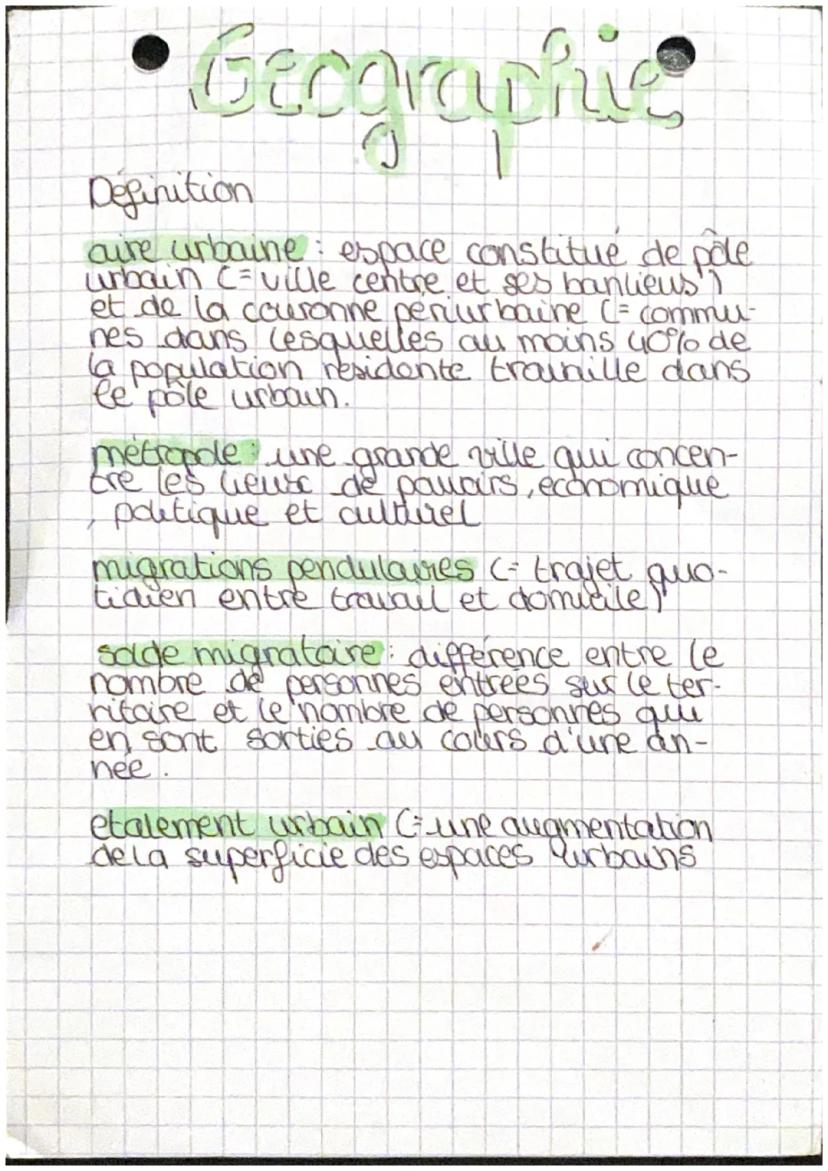 Geographie
Définition
aire urbaine : espace constitué de pôle
urbain (= ville centre et ses banlieus')
et de la couronne périurbaine (= commu-
nes dans lesquelles au moins 40% de
la population résidente travaille dans
le pôle urbain.
métropole : une grande ville qui concen-
tre les lieux de pouvoirs, économique
, politique et culturel
migrations pendulaires (= trajet quo-
tidien entre travail et domicile)
solde migratoire : différence entre le
nombre de personnes entrées sur le ter-
ritoire et le nombre de personnes qui
en sont sorties au cours d'une an-
née.
etalement urbain (= une augmentation
de la superficie des espaces urbains